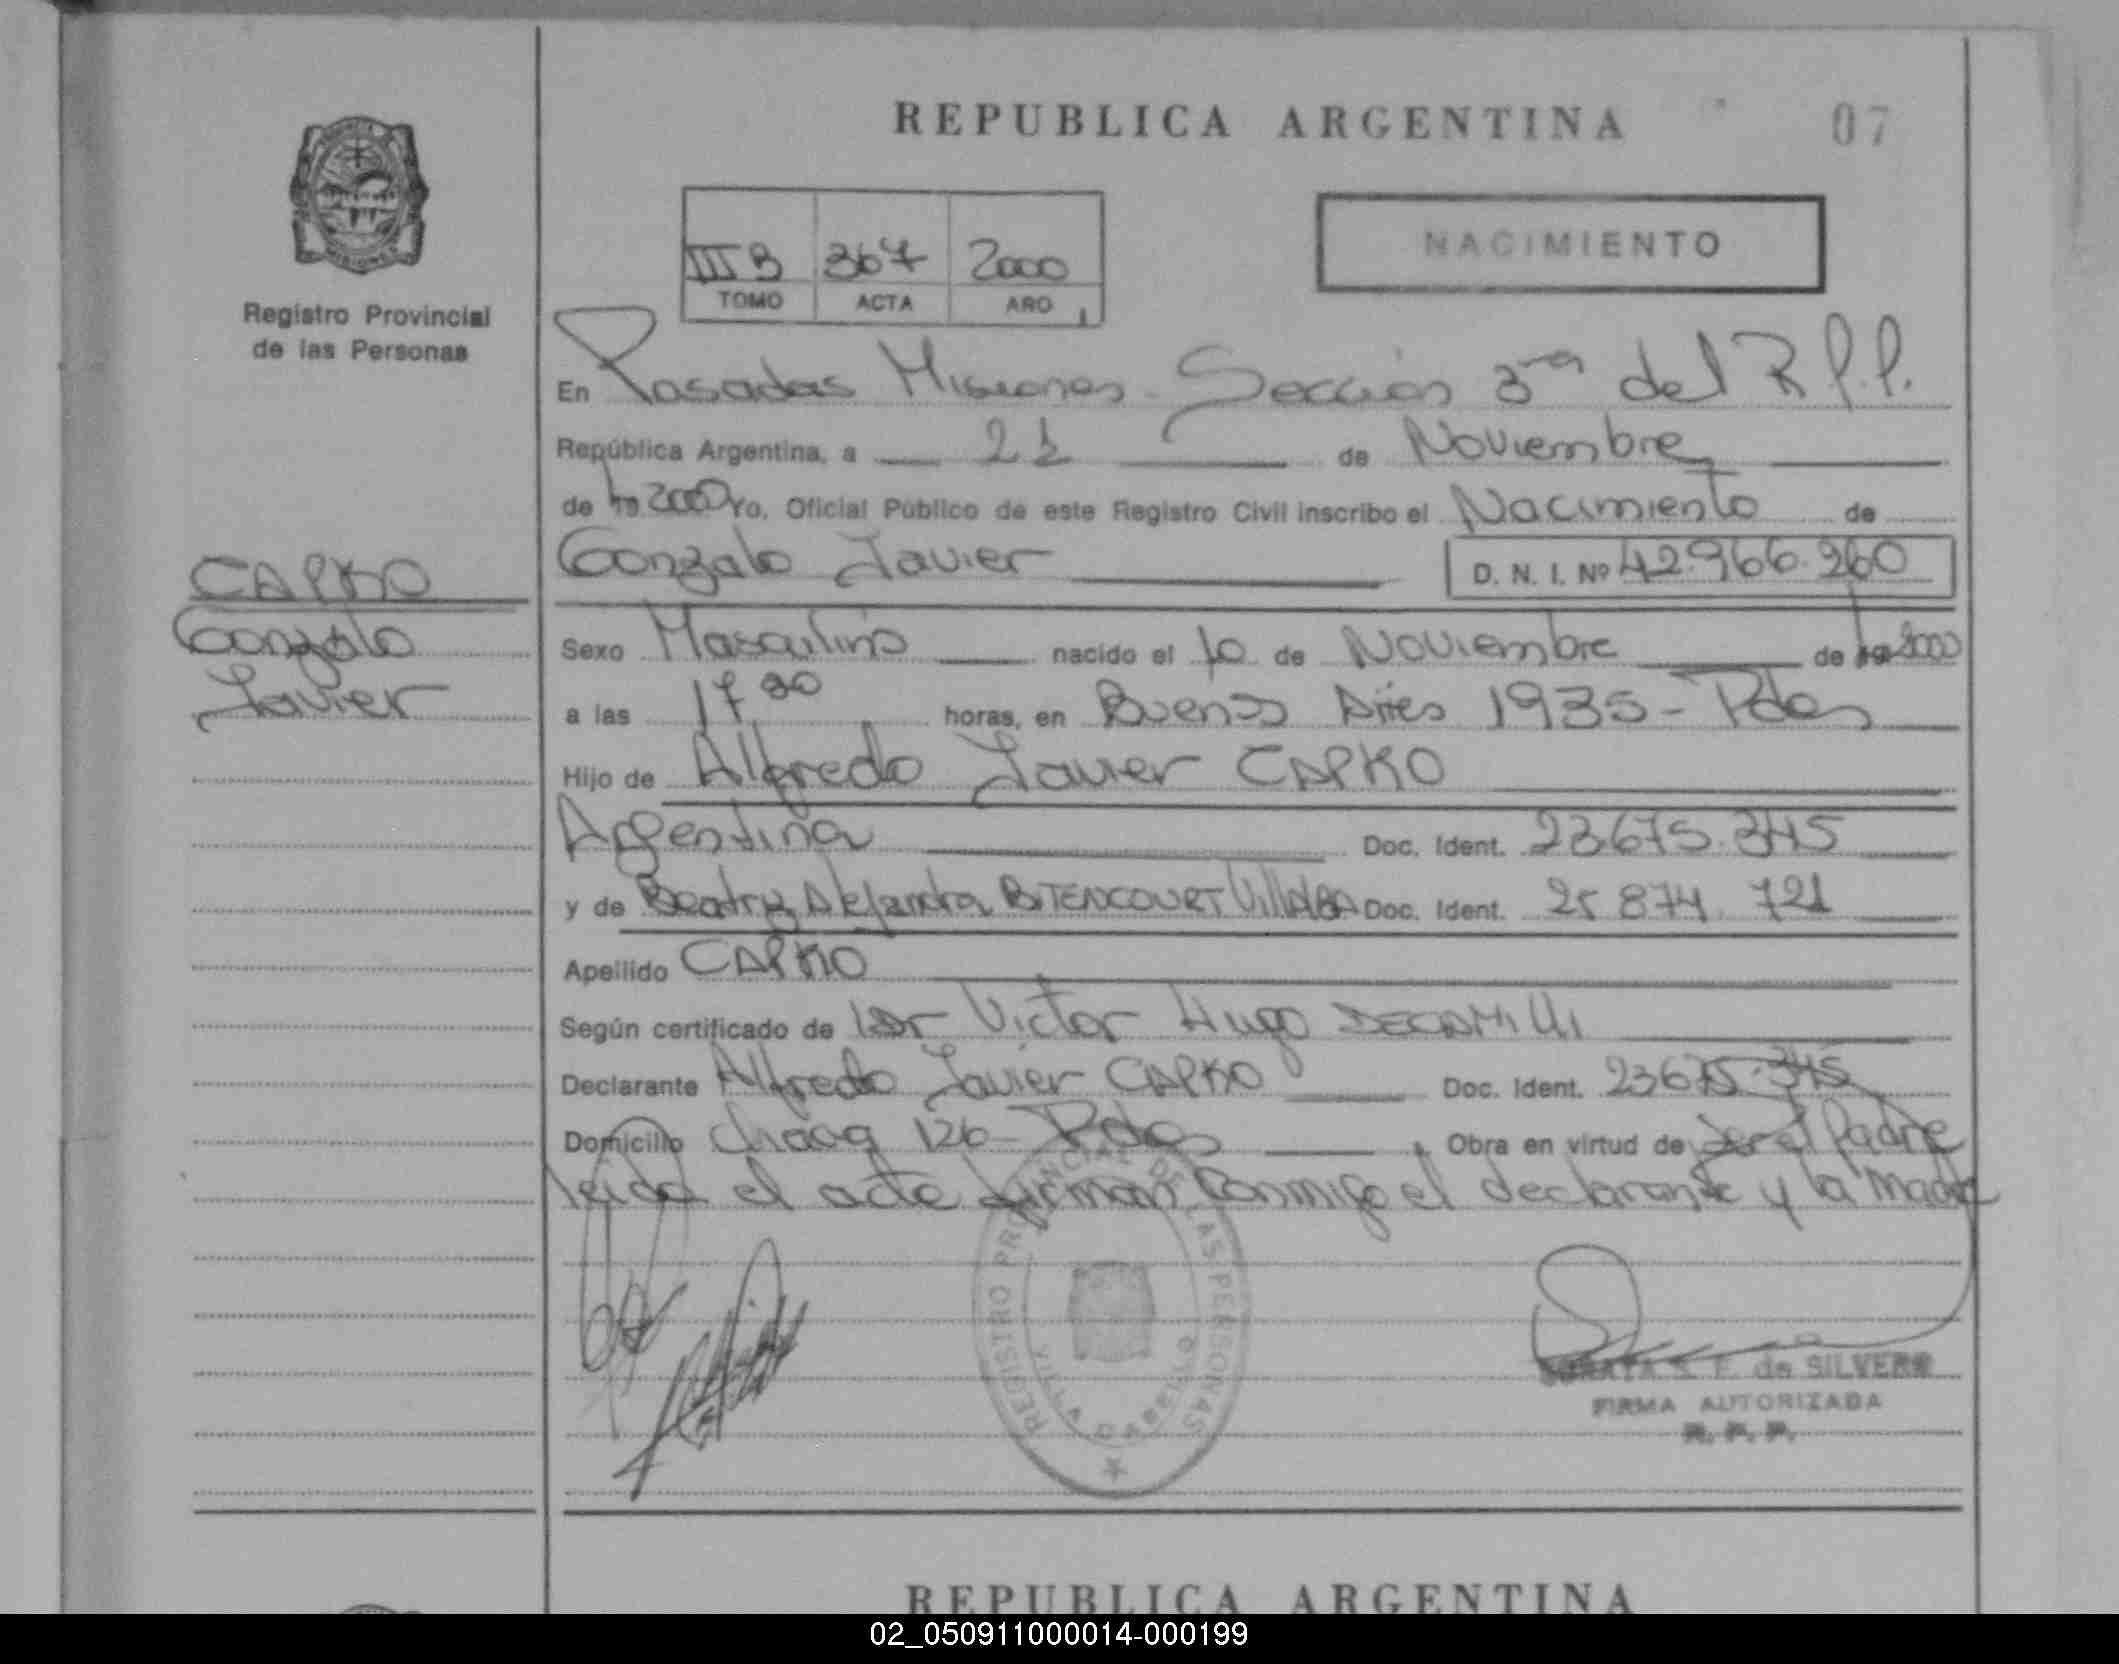 REPUBLICA ARGENTINA
07
NACIMIENTO
III B 367 2000
TOMO ACTA AÑO
Registro Provincial
de las Personas
En Posadas Misiones - Sección 3ra del R.P.P.
República Argentina, a 21 de Noviembre
de 2000 Yo, Oficial Público de este Registro Civil inscribo el Nacimiento de
Gonzalo Javier D. N. I. Nº 42.966.260
CAPKO
Gonzalo
Javier
Sexo Masculino nacido el 10 de Noviembre de 2000
a las horas, en Buenos Aires 1935 - Pdas
Hijo de Alfredo Javier CAPKO
Argentina Doc. Ident. 23675.345
y de Beatriz Alejandra BITENCOURT VILLALBA Doc. Ident. 25 874. 721
Apellido CAPKO
Según certificado de Dr Victor Hugo DECAMILLI
Declarante Alfredo Javier CAPKO Doc. Ident. 23675.345
Domicilio 126 - Pdas, Obra en virtud de Ser el Padre
leida el acta firman conmigo el declarante y la madre
REGISTRO PROVINCIAL DE LAS PERSONAS
VILLA CABELLO
S. F. de SILVERO
FIRMA AUTORIZADA
R. P. P.
REPUBLICA ARGENTINA
02_050911000014-000199